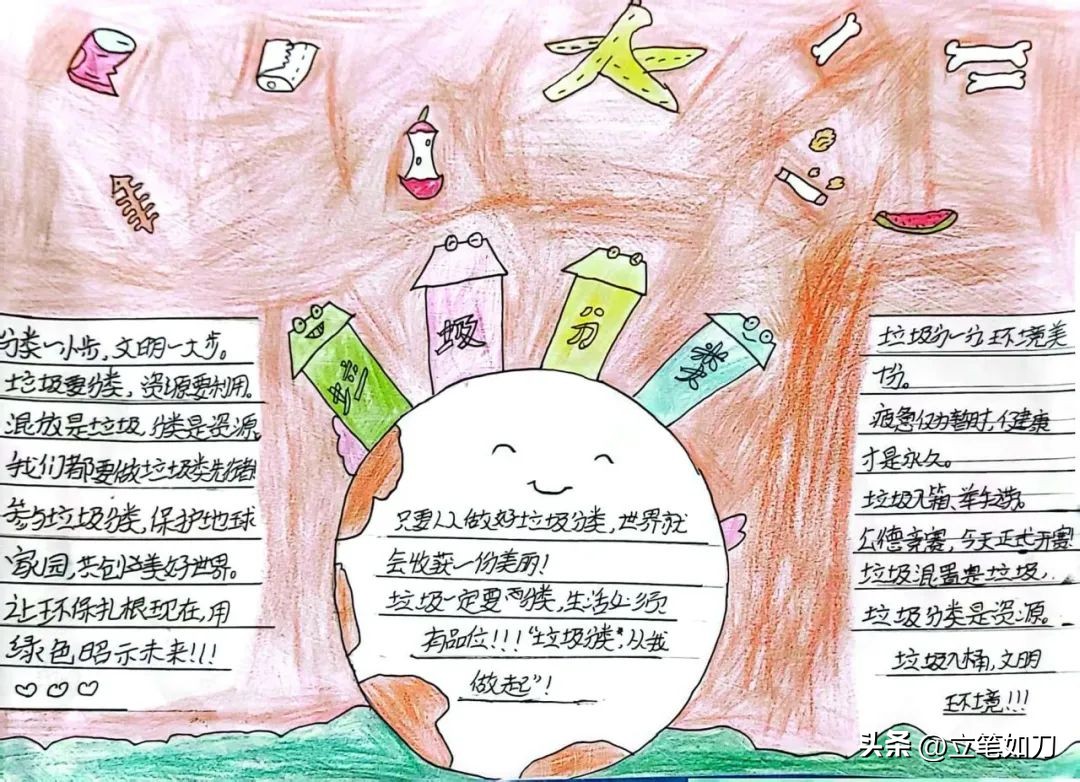 垃 圾 分 类
分类一小步，文明一大步。
垃圾要分类，资源要利用。
混放是垃圾，分类是资源。
我们都要做垃圾类先行者
参与垃圾分类，保护地球
家园，共创造美好世界。
让环保扎根现在，用
绿色昭示未来!!!
只要人人做好垃圾分类，世界就
会收获一份美丽!
垃圾一定要分类，生活处
有品位!!!“垃圾分类”，从我
做起”!
垃圾分一分，环境美
十分。
疲惫仅为暂时，健康
才是永久。
垃圾入箱，举
公德竞赛，今天正式开赛!
垃圾混置是垃圾，
垃圾分类是资源。
垃圾入桶，文明
环境!!!
头条 @立笔如刀